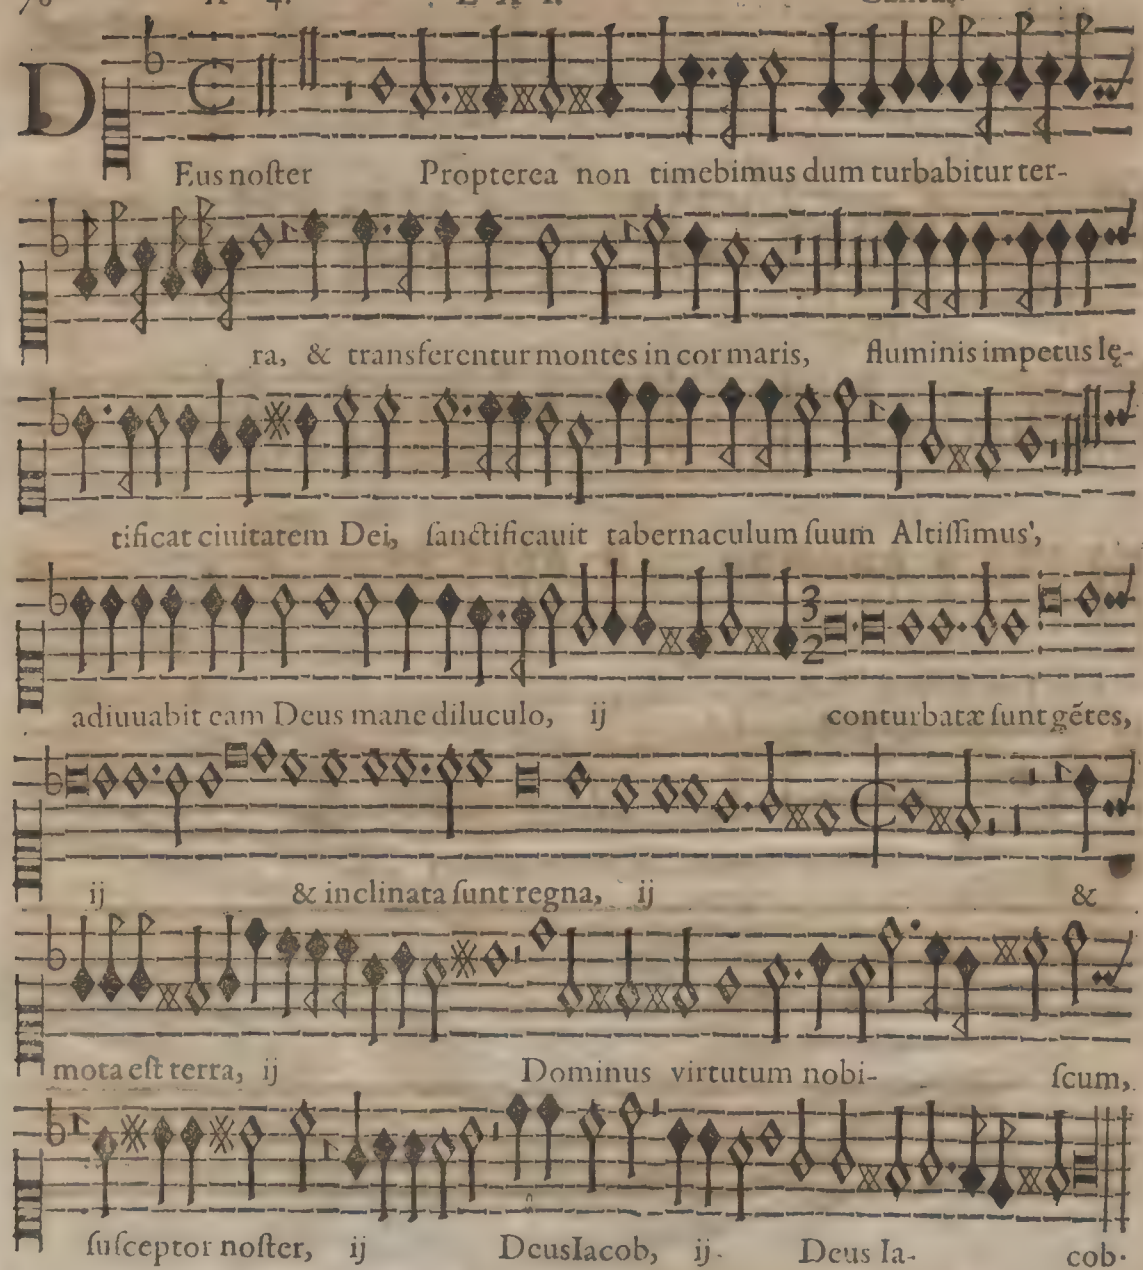 A 4.
D
Eus noſter Propterea non timebimus dum turbabitur ter-
ra, & transferentur montes in cor maris, fluminis impetus lę-
tificat ciuitatem Dei, ſanctificauit tabernaculum ſuum Altiſſimus',
adiuuabit eam Deus mane diluculo, ij conturbatæ ſunt gẽtes,
3
2
ij & inclinata ſunt regna, ij &
mota eſt terra, ij Dominus virtutum nobi- ſcum,
ſuſceptor noſter, ij Deus Iacob, ij. Deus Ia- cob.